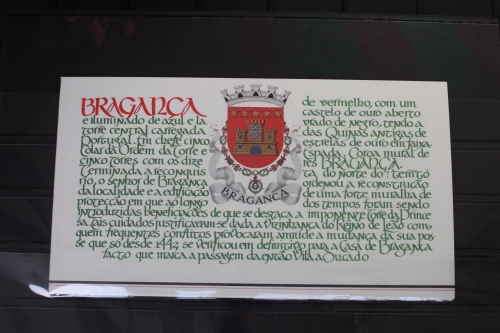 BRAGANÇA de vermelho, com um
castelo de ouro aberto
e iluminado de azul e la vrado de negro, tendo a
torre central carregada das Quinas antigas de
Portugal. Em chefe cinco estrelas de ouro em faixa.
Colar da Ordem da Torre e Espada. Coroa mural de
cinco torres com os dize res BRAGANÇA.
Terminada a reconquis ta do norte do territó
rio, o senhor de Bragança ordenou a reconstrução
da localidade e a edificação de uma forte muralha de
protecção em que ao longo dos tempos foram sendo
BRAGANÇA
introduzidas beneficiações de que se destaca a imponente Torre da Prince
sa tais cuidados justificaram-se dada a vizinhança do Reino de Leão com
quem frequentes conflitos provocaram amiúde a mudança da sua pos
se que só desde 1442 se verificou em definitivo para a Casa de Bragança
facto que marca a passagem da então Vila a Ducado